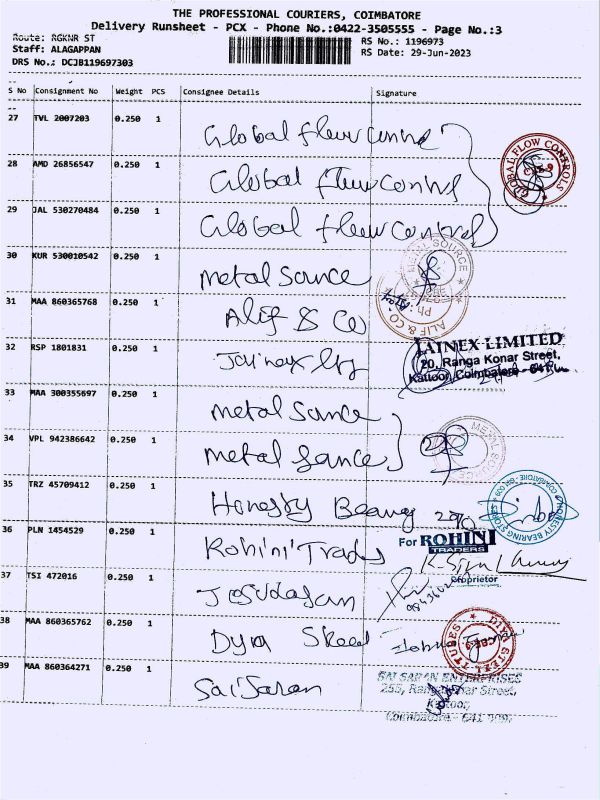 THE PROFESSIONAL COURIERS, COIMBATORE
Delivery Runsheet - PCX - Phone No.:0422-3505555 - Page No.:3
Route: RGKNR ST RS No.: 1196973
Staff: ALAGAPPAN RS Date: 29-Jun-2023
DRS No.: DCJB119697303
S No Consignment No Weight PCS Consignee Details Signature
27 TVL 2007203 0.250 1 Global flow control
28 AMD 26856547 0.250 1 Global flow control
GLOBAL FLOW CONTROLS
29 JAL 530270484 0.250 1 Global flow control
30 KUR 530010542 0.250 1 metal source
METAL SOURCE
31 MAA 860365768 0.250 1 Alif & Co
ALIF & CO.
32 RSP 1801831 0.250 1 Jainex
JAINEX LIMITED
20, Ranga Konar Street,
Kattoor, Coimbatore - 641
33 MAA 300355697 0.250 1 metal source
34 VPL 942386642 0.250 1 metal source
METAL SOURCE
35 TRZ 45709412 0.250 1 Honesty Bearing
HONESTY BEARING STORES COIMBATORE
36 PLN 1454529 0.250 1 Rohini Traders
For ROHINI
TRADERS
Proprietor
37 TSI 472016 0.250 1 Jesudasan
38 MAA 860365762 0.250 1
STEEL TUBES
39 MAA 860364271 0.250 1 Sai Saran
SAI SARAN ENTERPRISES
255, Ranga Konar Street,
Kattoor,
Coimbatore - 641 009.